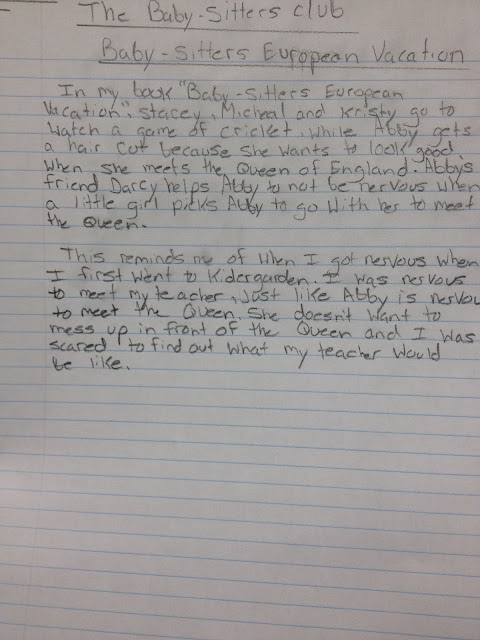 The Baby-Sitters Club
Baby-Sitters European Vacation
In my book "Baby-Sitters European
Vacation", Stacey, Micheal and Kristy go to
watch a game of cricket, while Abby gets
a hair cut because she wants to look good
when she meets the Queen of England. Abby's
friend Darcy helps Abby to not be nervous when
a little girl picks Abby to go with her to meet
the Queen.
This reminds me of when I got nervous when
I first went to Kidergarden. I was nervous
to meet my teacher, just like Abby is nervou
to meet the Queen. She doesn't want to
mess up in front of the Queen and I was
scared to find out what my teacher would
be like.